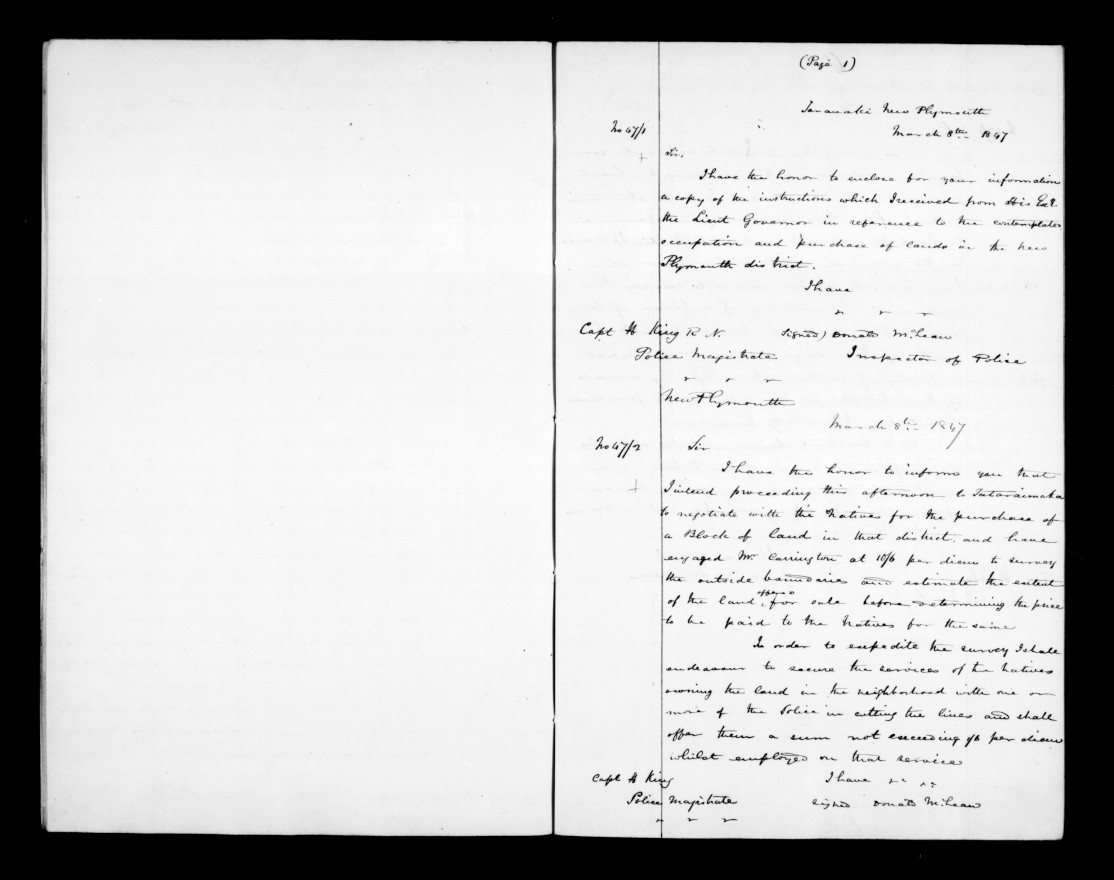 (Page 1)
Taranaki New Plymouth
No 47/1
March 8th 1847
Sir,
I have the honor to enclose for your information
a copy of the instructions which I received from His Exl.
the Lieut Governor in reference to the contemplated
occupation and purchase of lands in the New
Plymouth district.
I have
" " "
Capt H King R N. Signed) Donald McLean
Police Magistrate Inspector of Police
" " "
New Plymouth
March 8th 1847
No 47/2 Sir
I have the honor to inform you that
I intend proceeding this afternoon to Tataraimaka
to negotiate with the Natives for the purchase of
a Block of land in that district, and have
engaged Mr. Carrington at 10/6 per diem to survey
the outside boundaries and estimate the extent
of the land offered for sale before determining the price
to be paid to the Natives for the same
In order to expedite the survey I shall
endeavour to secure the services of the Natives
owning the land in the neighborhood with one or
more of the Police in cutting the lines and shall
offer them a sum not exceeding per diem
whilst employed on that service
Capt H King I have " " " "
Police Magistrate signed Donald McLean
" " "